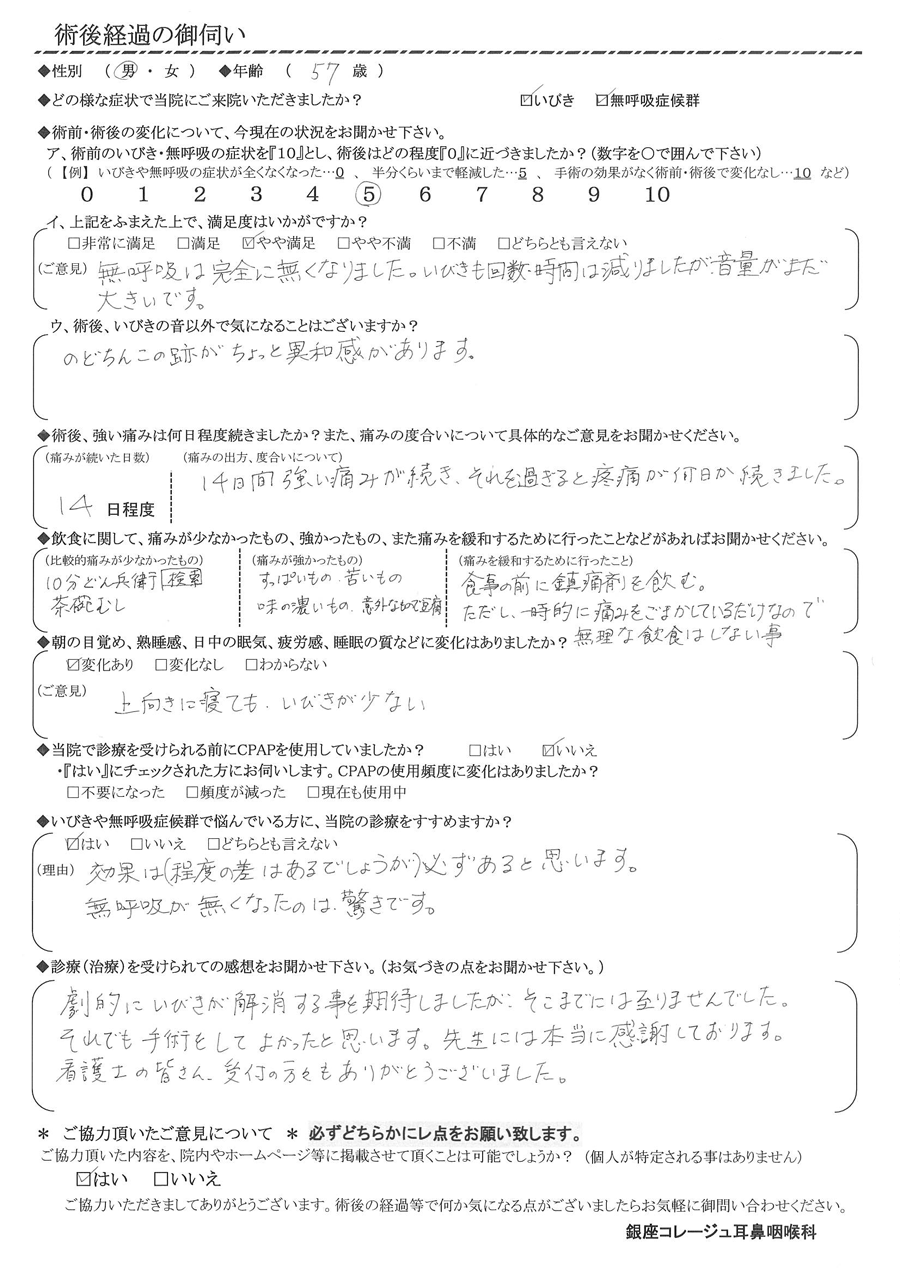 術後経過の御伺い
◆性別 （ 男 ・ 女 ） ◆年齢 （ 57 歳 ）
◆どの様な症状で当院にご来院いただきましたか？ ☑いびき ☑無呼吸症候群
◆術前・術後の変化について、今現在の状況をお聞かせ下さい。
ア、術前のいびき・無呼吸の症状を『10』とし、術後はどの程度『0』に近づきましたか？（数字を〇で囲んで下さい）
（ 【例】 いびきや無呼吸の症状が全くなくなった…0 、 半分くらいまで軽減した…5 、 手術の効果がなく術前・術後で変化なし…10 など）
0 1 2 3 4 5 6 7 8 9 10
イ、上記をふまえた上で、満足度はいかがですか？
☐非常に満足 ☐満足 ☑やや満足 ☐やや不満 ☐不満 ☐どちらとも言えない
（ご意見） 無呼吸は完全に無くなりました。いびきも回数・時間は減りましたが、音量がまだ
大きいです。
ウ、術後、いびきの音以外で気になることはございますか？
のどちんこの跡がちょっと異和感があります。
◆術後、強い痛みは何日程度続きましたか？また、痛みの度合いについて具体的なご意見をお聞かせください。
（痛みが続いた日数） （痛みの出方、度合いについて）
14日間強い痛みが続き、それを過ぎると疼痛が何日か続きました。
14 日程度
◆飲食に関して、痛みが少なかったもの、強かったもの、また痛みを緩和するために行ったことなどがあればお聞かせください。
（比較的痛みが少なかったもの） （痛みが強かったもの） （痛みを緩和するために行ったこと）
10分どん兵衛 検索 すっぱいもの・苦いもの 食事の前に鎮痛剤を飲む。
茶碗むし 味の濃いもの、意外なもので豆腐 ただし、一時的に痛みをごまかしているだけなので
無理な飲食はしない事
◆朝の目覚め、熟睡感、日中の眠気、疲労感、睡眠の質などに変化はありましたか？
☑変化あり ☐変化なし ☐わからない
（ご意見） 上向きに寝ても、いびきが少ない
◆当院で診療を受けられる前にCPAPを使用していましたか？ ☐はい ☑いいえ
・『はい』にチェックされた方にお伺いします。CPAPの使用頻度に変化はありましたか？
☐不要になった ☐頻度が減った ☐現在も使用中
◆いびきや無呼吸症候群で悩んでいる方に、当院の診療をすすめますか？
☑はい ☐いいえ ☐どちらとも言えない
（理由） 効果は（程度の差はあるでしょうが）必ずあると思います。
無呼吸が無くなったのは、驚きです。
◆診療（治療）を受けられての感想をお聞かせ下さい。（お気づきの点をお聞かせ下さい。）
劇的にいびきが解消する事を期待しましたが、そこまでには至りませんでした。
それでも手術をしてよかったと思います。先生には本当に感謝しております。
看護士の皆さん、受付の方々もありがとうございました。
＊ ご協力頂いたご意見について ＊ 必ずどちらかにレ点をお願い致します。
ご協力頂いた内容を、院内やホームページ等に掲載させて頂くことは可能でしょうか？ （個人が特定される事はありません）
☑はい ☐いいえ
ご協力いただきましてありがとうございます。術後の経過等で何か気になる点がございましたらお気軽に御問い合わせください。
銀座コレージュ耳鼻咽喉科